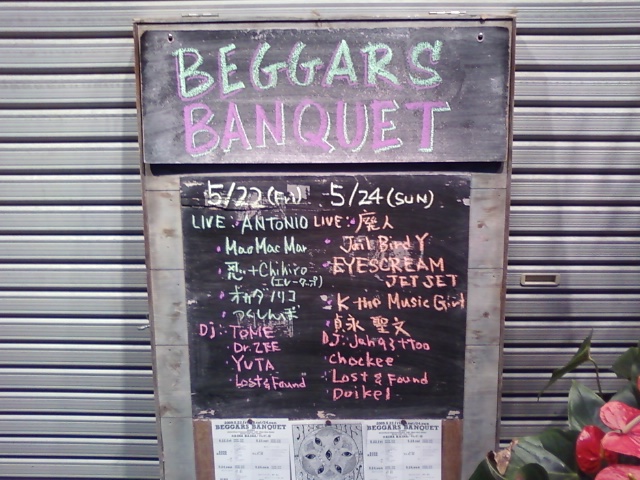 BEGGARS
BANQUET
5/22 (Fri)
LIVE: ANTONIO
・Mao Mac Mar
・忍 + Chihiro
(エレーターブ)
・オカダノリコ
・つくしんぼ
Dj: TOME
Dr. ZEE
YUTA
Lost & Found
5/24 (SUN)
LIVE: 廃人
・Jail Bird Y
・EYESCREAM
JET SET
・K the Music Girl
・貞永 聖文
DJ: Jah93+Too
Chockee
Lost & Found
Doikel
BEGGARS BANQUET
BEGGARS BANQUET